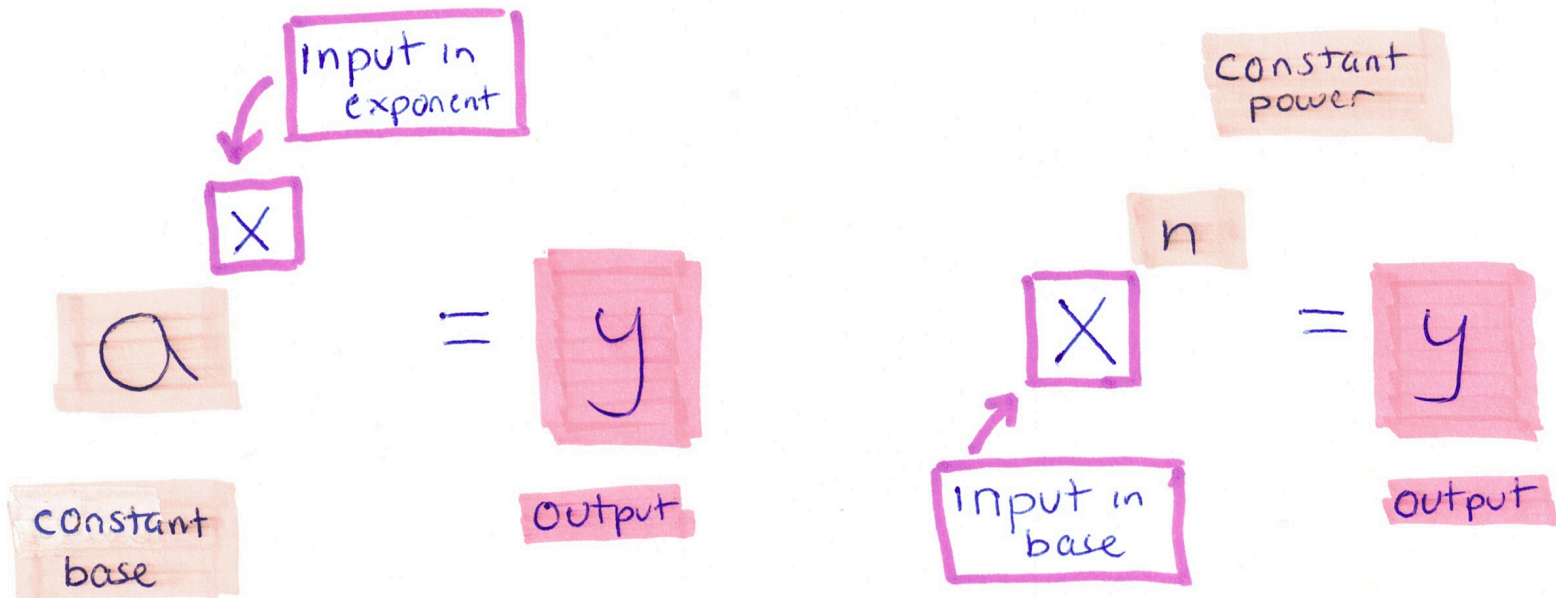 Input in
exponent
x
a = y
constant
base
output
constant
power
n
x = y
Input in
base
output